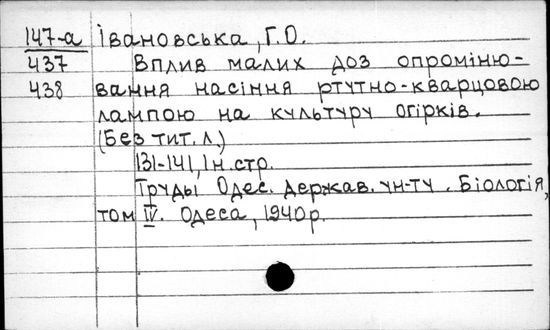 147-а Івановська, Г.О.
437 Вплив малих доз опроміню-
438 вання насіння ртутно-кварцовою
лампою на культуру огірків.
(Без тит. л.)
131-141, Ін. стр.
Труды Одес. держав. ун-ту. Біологія,
том IV. Одеса, 1940 р.